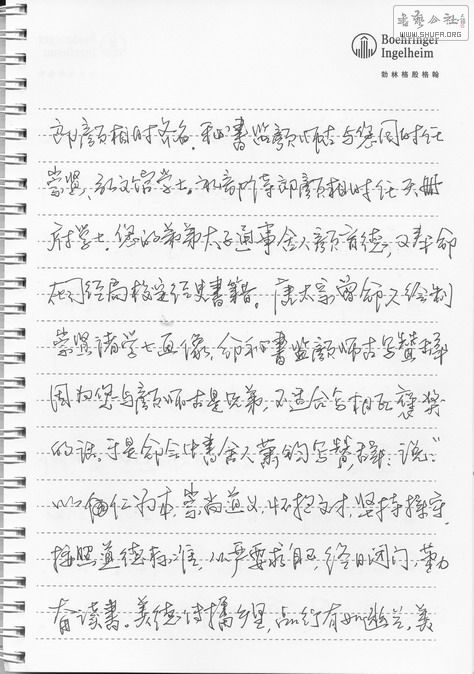 书艺公社
WWW.SHUFA.ORG
Boehringer
Ingelheim
勃林格殷格翰
部颜相时齐名。秘书监颜师古与您同时任
崇贤、弘文馆学士。礼部侍郎颜相时任天册
府学士。您的弟弟太子通事舍人颜育德，又奉命
在司经局校定经史書籍。唐太宗曾命人绘制
崇贤诸学士画像，命秘書监颜师古写赞辞
因为您与颜师古是兄弟，不适合写相互褒奖
的话。于是命令中書舍人萧钧写赞辞：说：“
以仁为本，崇尚道义，怀抱文才，坚持操守，
按照道德标准，以严要求自己，终日闭门，勤
奋读書。美德传播乡里，品行有如幽兰，美